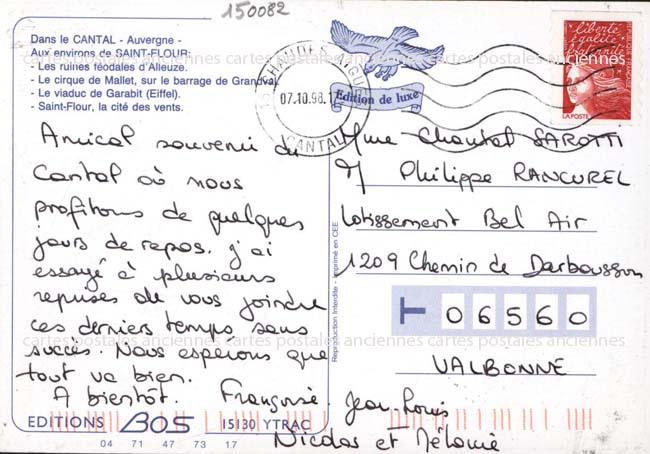 150082
Dans le CANTAL - Auvergne -
Aux environs de SAINT-FLOUR:
- Les ruines féodales d'Alleuze.
- Le cirque de Mallet, sur le barrage de Grandval.
- Le viaduc de Garabit (Eiffel).
- Saint-Flour, la cité des vents.
cartes postales anciennes cartes postales anciennes cartes postales anciennes
15 CHAUDES AIGUES
07.10.98.1
CANTAL
Edition de luxe
liberté
égalité
fraternité
LA POSTE
Amical souvenir du
Cantal où nous
profitons de quelques
jours de repos. J'ai
essayé à plusieurs
reprises de vous joindre
ces derniers temps, sans
succès. Nous espérons que
tout va bien.
A bientôt. Françoise
Jean Louis
Nicolas et Mélanie
Mme Chantal SAROTTI
M Philippe RANCUREL
Lotissement Bel Air
1209 Chemin de Darboussan
06560
VALBONNE
Reproduction Interdite - Imprimé en CEE
cartes postales anciennes cartes postales anciennes cartes postales anciennes
EDITIONS BOS 15130 YTRAC
04 71 47 73 17